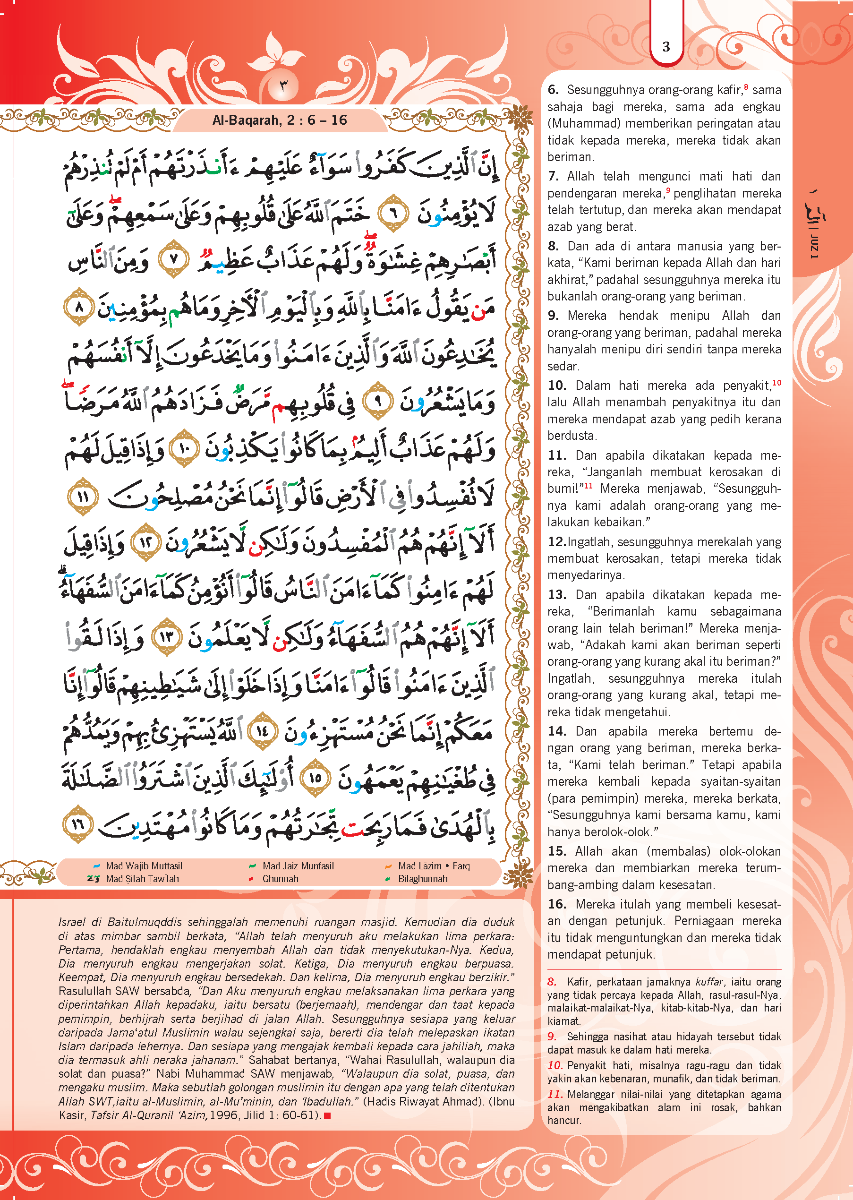 3
٣
Al-Baqarah, 2 : 6 – 16
إِنَّ ٱلَّذِينَ كَفَرُوا۟ سَوَآءٌ عَلَيْهِمْ ءَأَنذَرْتَهُمْ أَمْ لَمْ تُنذِرْهُمْ
لَا يُؤْمِنُونَ ٦ خَتَمَ ٱللَّهُ عَلَىٰ قُلُوبِهِمْ وَعَلَىٰ سَمْعِهِمْ ۖ وَعَلَىٰٓ
أَبْصَٰرِهِمْ غِشَٰوَةٌ ۖ وَلَهُمْ عَذَابٌ عَظِيمٌ ٧ وَمِنَ ٱلنَّاسِ
مَن يَقُولُ ءَامَنَّا بِٱللَّهِ وَبِٱلْيَوْمِ ٱلْءَاخِرِ وَمَا هُم بِمُؤْمِنِينَ ٨
يُخَٰدِعُونَ ٱللَّهَ وَٱلَّذِينَ ءَامَنُوا۟ وَمَا يَخْدَعُونَ إِلَّآ أَنفُسَهُمْ
وَمَا يَشْعُرُونَ ٩ فِى قُلُوبِهِم مَّرَضٌ فَزَادَهُمُ ٱللَّهُ مَرَضًا ۖ
وَلَهُمْ عَذَابٌ أَلِيمٌۢ بِمَا كَانُوا۟ يَكْذِبُونَ ١٠ وَإِذَا قِيلَ لَهُمْ
لَا تُفْسِدُوا۟ فِى ٱلْأَرْضِ قَالُوٓا۟ إِنَّمَا نَحْنُ مُصْلِحُونَ ١١
أَلَآ إِنَّهُمْ هُمُ ٱلْمُفْسِدُونَ وَلَٰكِن لَّا يَشْعُرُونَ ١٢ وَإِذَا قِيلَ
لَهُمْ ءَامِنُوا۟ كَمَآ ءَامَنَ ٱلنَّاسُ قَالُوٓا۟ أَنُؤْمِنُ كَمَآ ءَامَنَ ٱلسُّفَهَآءُ ۗ
أَلَآ إِنَّهُمْ هُمُ ٱلسُّفَهَآءُ وَلَٰكِن لَّا يَعْلَمُونَ ١٣ وَإِذَا لَقُوا۟
ٱلَّذِينَ ءَامَنُوا۟ قَالُوٓا۟ ءَامَنَّا وَإِذَا خَلَوْا۟ إِلَىٰ شَيَٰطِينِهِمْ قَالُوٓا۟ إِنَّا
مَعَكُمْ إِنَّمَا نَحْنُ مُسْتَهْزِءُونَ ١٤ ٱللَّهُ يَسْتَهْزِئُ بِهِمْ وَيَمُدُّهُمْ
فِى طُغْيَٰنِهِمْ يَعْمَهُونَ ١٥ أُو۟لَٰٓئِكَ ٱلَّذِينَ ٱشْتَرَوُا۟ ٱلضَّلَٰلَةَ
بِٱلْهُدَىٰ فَمَا رَبِحَت تِّجَٰرَتُهُمْ وَمَا كَانُوا۟ مُهْتَدِينَ ١٦
Mad Wajib Muttasil
Mad Jaiz Munfasil
Mad Lazim • Farq
Mad Silah Tawilah
Ghunnah
Bilaghunnah
Israel di Baitulmuqddis sehinggalah memenuhi ruangan masjid. Kemudian dia duduk
di atas mimbar sambil berkata, “Allah telah menyuruh aku melakukan lima perkara:
Pertama, hendaklah engkau menyembah Allah dan tidak menyekutukan-Nya. Kedua,
Dia menyuruh engkau mengerjakan solat. Ketiga, Dia menyuruh engkau berpuasa.
Keempat, Dia menyuruh engkau bersedekah. Dan kelima, Dia menyuruh engkau berzikir.”
Rasulullah SAW bersabda, “Dan Aku menyuruh engkau melaksanakan lima perkara yang
diperintahkan Allah kepadaku, iaitu bersatu (berjemaah), mendengar dan taat kepada
pemimpin, berhijrah serta berjihad di jalan Allah. Sesungguhnya sesiapa yang keluar
daripada Jama‘atul Muslimin walau sejengkal saja, bererti dia telah melepaskan ikatan
Islam daripada lehernya. Dan sesiapa yang mengajak kembali kepada cara jahiliah, maka
dia termasuk ahli neraka jahanam.” Sahabat bertanya, “Wahai Rasulullah, walaupun dia
solat dan puasa?” Nabi Muhammad SAW menjawab, “Walaupun dia solat, puasa, dan
mengaku muslim. Maka sebutlah golongan muslimin itu dengan apa yang telah ditentukan
Allah SWT,iaitu al-Muslimin, al-Mu’minin, dan ‘Ibadullah.” (Hadis Riwayat Ahmad). (Ibnu
Kasir, Tafsir Al-Quranil ‘Azim,1996, Jilid 1: 60-61).
6. Sesungguhnya orang-orang kafir,8 sama
sahaja bagi mereka, sama ada engkau
(Muhammad) memberikan peringatan atau
tidak kepada mereka, mereka tidak akan
beriman.
7. Allah telah mengunci mati hati dan
pendengaran mereka,9 penglihatan mereka
telah tertutup, dan mereka akan mendapat
azab yang berat.
8. Dan ada di antara manusia yang ber-
kata, “Kami beriman kepada Allah dan hari
akhirat,” padahal sesungguhnya mereka itu
bukanlah orang-orang yang beriman.
9. Mereka hendak menipu Allah dan
orang-orang yang beriman, padahal mereka
hanyalah menipu diri sendiri tanpa mereka
sedar.
10. Dalam hati mereka ada penyakit,10
lalu Allah menambah penyakitnya itu dan
mereka mendapat azab yang pedih kerana
berdusta.
11. Dan apabila dikatakan kepada me-
reka, “Janganlah membuat kerosakan di
bumi!”11 Mereka menjawab, “Sesungguh-
nya kami adalah orang-orang yang me-
lakukan kebaikan.”
12.Ingatlah, sesungguhnya merekalah yang
membuat kerosakan, tetapi mereka tidak
menyedarinya.
13. Dan apabila dikatakan kepada me-
reka, “Berimanlah kamu sebagaimana
orang lain telah beriman!” Mereka menja-
wab, “Adakah kami akan beriman seperti
orang-orang yang kurang akal itu beriman?”
Ingatlah, sesungguhnya mereka itulah
orang-orang yang kurang akal, tetapi me-
reka tidak mengetahui.
14. Dan apabila mereka bertemu de-
ngan orang yang beriman, mereka berka-
ta, “Kami telah beriman.” Tetapi apabila
mereka kembali kepada syaitan-syaitan
(para pemimpin) mereka, mereka berkata,
“Sesungguhnya kami bersama kamu, kami
hanya berolok-olok.”
15. Allah akan (membalas) olok-olokan
mereka dan membiarkan mereka terum-
bang-ambing dalam kesesatan.
16. Mereka itulah yang membeli kesesat-
an dengan petunjuk. Perniagaan mereka
itu tidak menguntungkan dan mereka tidak
mendapat petunjuk.
8. Kafir, perkataan jamaknya kuffar, iaitu orang
yang tidak percaya kepada Allah, rasul-rasul-Nya.
malaikat-malaikat-Nya, kitab-kitab-Nya, dan hari
kiamat.
9. Sehingga nasihat atau hidayah tersebut tidak
dapat masuk ke dalam hati mereka.
10. Penyakit hati, misalnya ragu-ragu dan tidak
yakin akan kebenaran, munafik, dan tidak beriman.
11. Melanggar nilai-nilai yang ditetapkan agama
akan mengakibatkan alam ini rosak, bahkan
hancur.
١ الٓمّٓ | JUZ 1